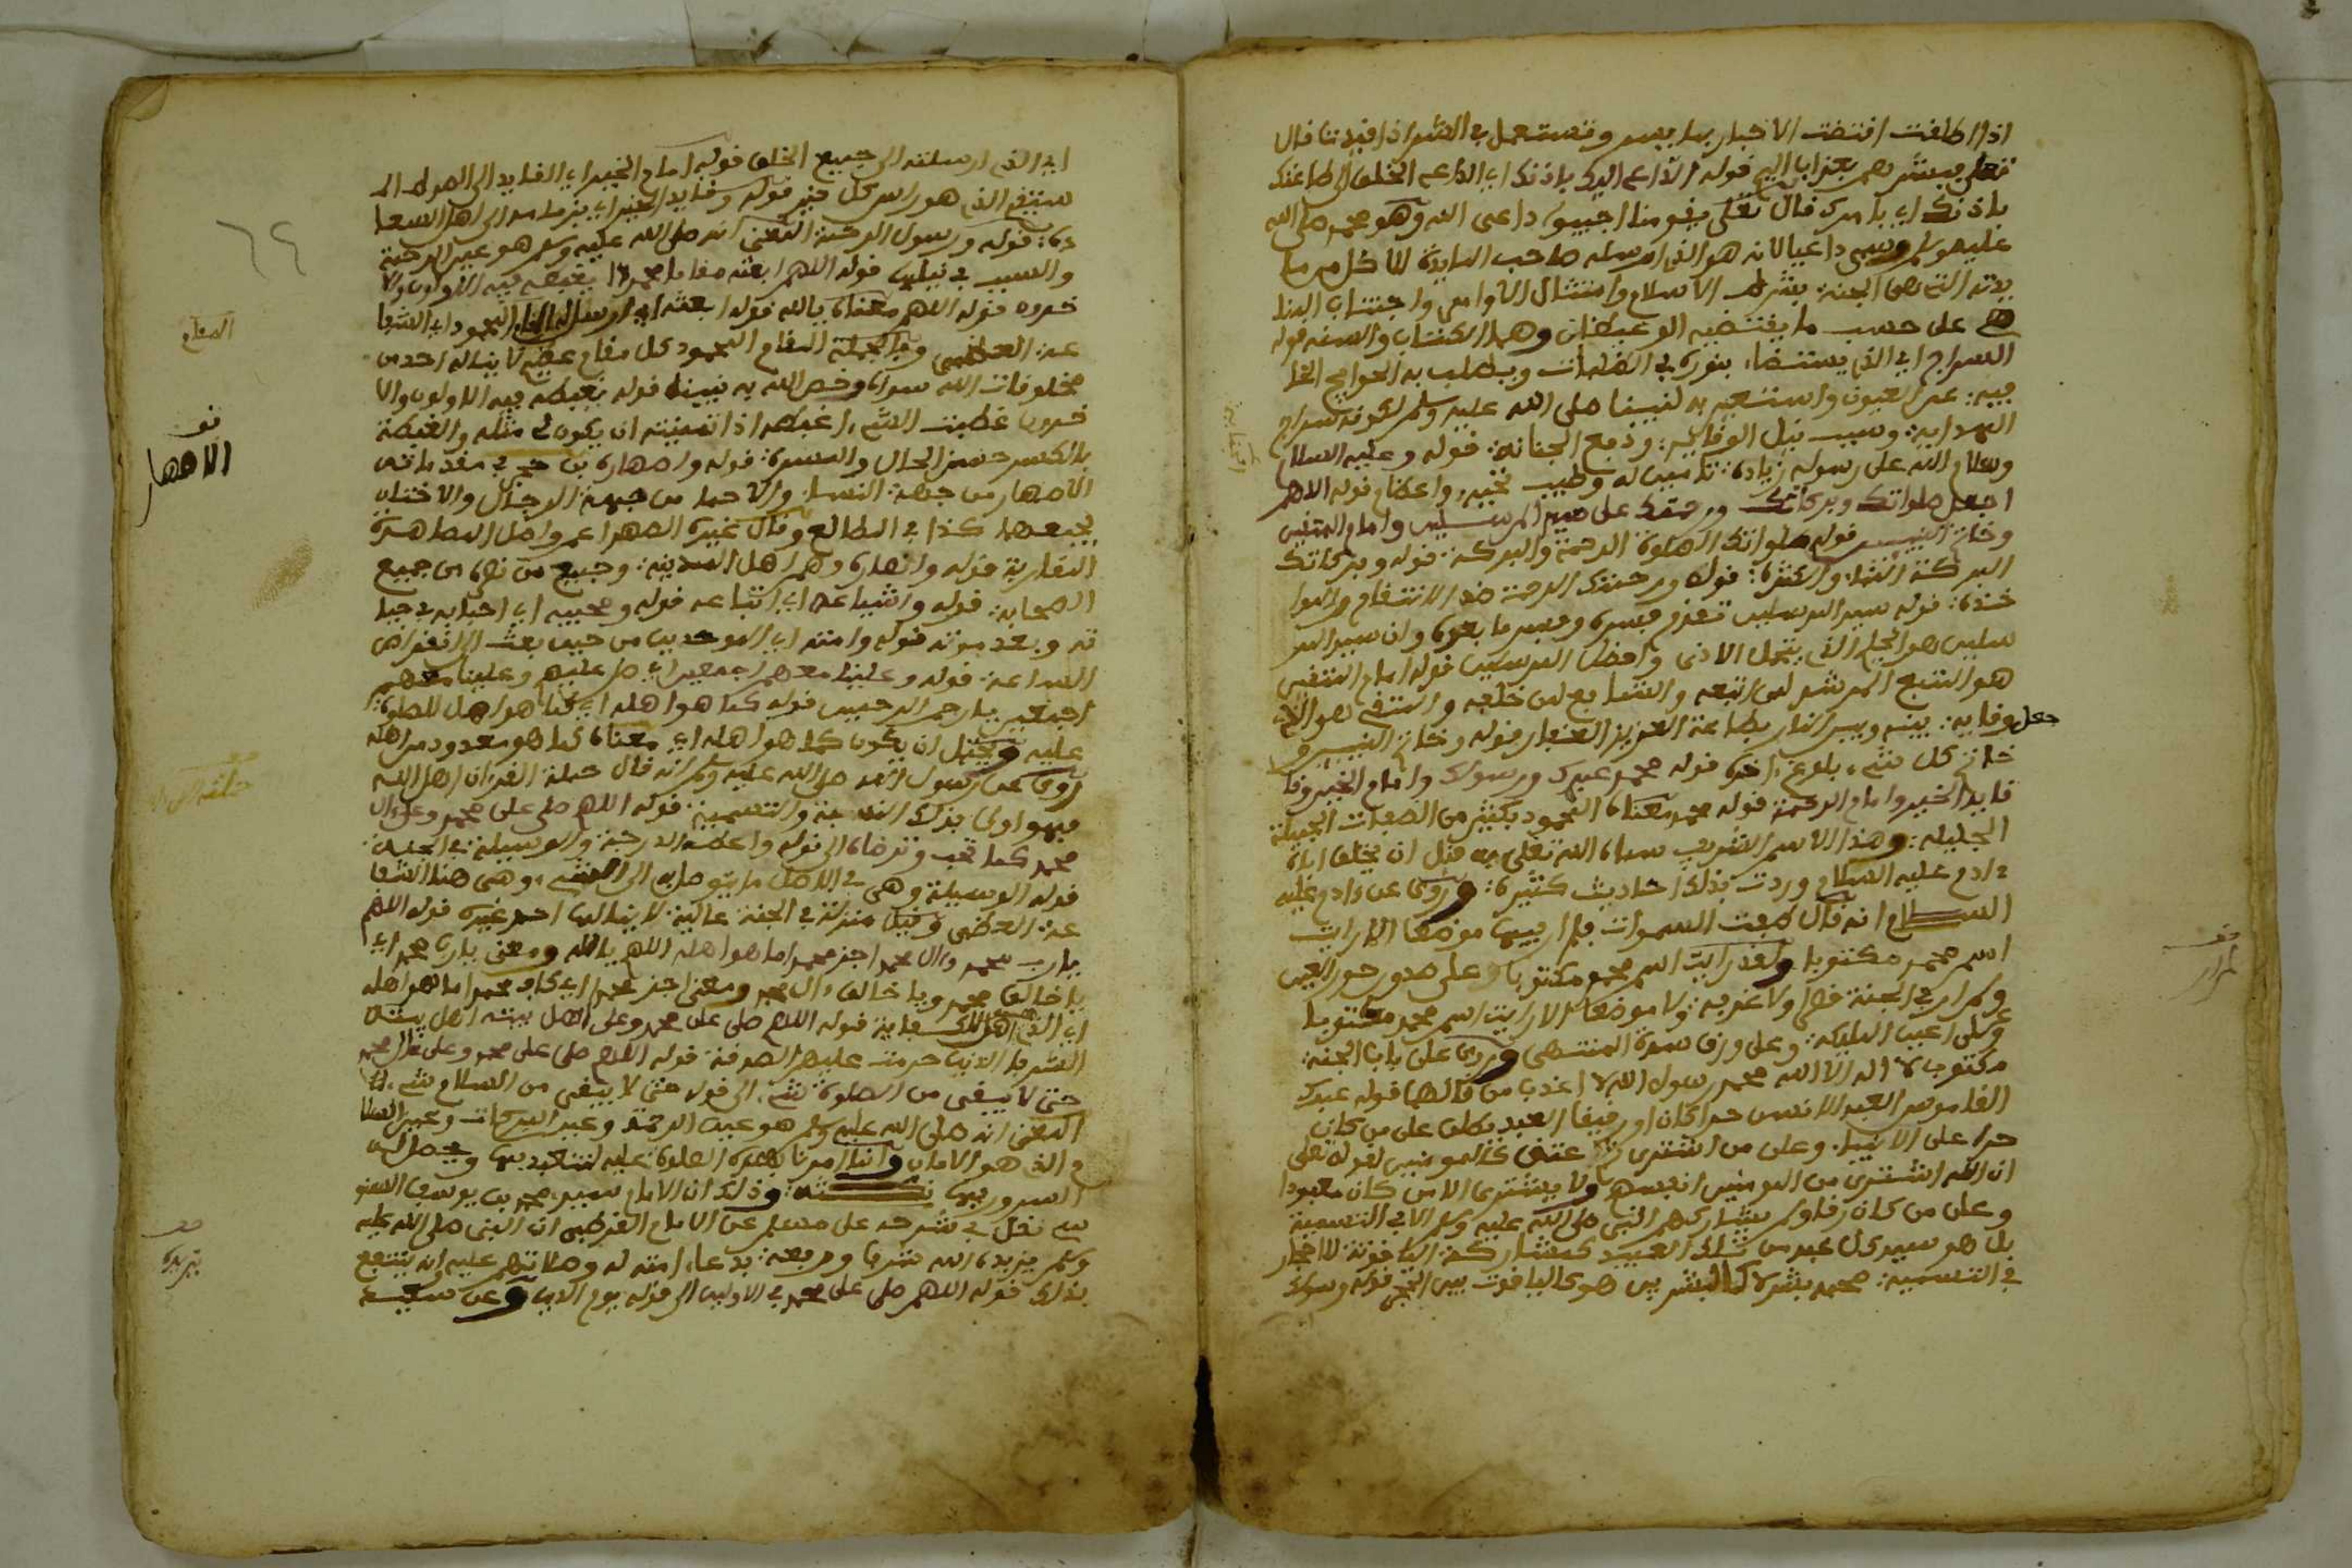 اذا اطلقت اقتضت الاخبار بما يسر وتستعمل في الشر اذا قيدت قال
تعلى فبشرهم بعذاب اليم قوله الداعي اليك باذنك اي الداعي الخلق الى طاعتك
باذنك اي بامرك قال تعلى يقومنا اجيبوا داعي الله وهو محمد صلى الله
عليه وسلم وسمي داعيا لانه هو الذي ارسله صاحب المايدة للاكل من ما
يدته التي هي الجنة بشرط الاسلام وامتثال الاوامر واجتناب المنا
هي على حسب ما يقتضيه الوحيان وهما الكتاب والسنة قوله
السراج اي الذي يستضاء بنوره في الظلمات ويطلب به الحوايج الخا
فية عن العيون واستعير به لنبينا صلى الله عليه وسلم لكونه سراج
الهداية وسبب نيل الوقاية ودفع الجناية قوله وعليه السلام
وسلام الله على رسوله زيادة تامين له وطيب تحية واعظام قوله اللهم
اجعل صلواتك وبركاتك ورحمتك على سيد المرسلين وامام المتقين
وخاتم النبيين قوله صلواتك الصلوة الرحمة والبركة قوله وبركاتك
البركة النماء والكثرة قوله ورحمتك الرحمة ضد الانتقام والموا
خذة قوله سيد المرسلين تقدم مفسره وفسر ما بعده وان سيد المر
سلين هو الحليم الذي يتحمل الاذى وافضل المرسلين قوله امام المتقين
هو المتبع المرشد لمن اتبعه والشافع لمن خلفه والمتقي هو الذي
جعل وقاية بينه وبين النار بطاعة العزيز الغفار قوله وخاتم النبيين و
خاتم كل شيء بلوغ اخره قوله محمد عبدك ورسولك وامام الخير وقا
قايد الخير وامام الرحمة قوله محمد معناه المحمود بكثير من الصفات الجميلة
الجليلة وهذا الاسم الشريف سماه الله تعلى به قبل ان يخلق اباه
ءادم عليه السلام وردت بذلك احاديث كثيرة وروي عن ءادم عليه
السلام انه قال طفت السموات فلم ار فيها موضعا الا رايت
اسم محمد مكتوبا ولقد رايت اسم محمد مكتوبا على صدور حور العين
ولم ار في الجنة قصرا ولا غرفة ولا موضعا الا رايت اسم محمد مكتوبا
وعلى اعين المليكة وعلى ورق سدرة المنتهى وروي على باب الجنة
مكتوب لا اله الا الله محمد رسول الله لا اعذب من قالها قوله عبدك
القاموس العبد للانس حرا كان او رقيقا العبد يطلق على من كان
حرا على الانبياء وعلى من اشترى ثم عتق كالمومنين لقوله تعلى
ان الله اشترى من المومنين انفسهم ولا يشترى الا من كان معبودا
وعلى من كان رقا ولم يشاركهم النبي صلى الله عليه وسلم الا في التسمية
بل هو سيد كل عبد من تلك العبيد كمشاركة الياقوتة للاحجار
في التسمية محمد بشر لا كالبشر بل هو كالياقوت بين الحجر قوله ورسولك
اي الذي ارسلته الى جميع الخلق قوله امام الخير اي القايد الى الصراط الم
ستقيم الذي هو راس كل خير قوله وقايد الخير اي بزمامه الى اهل السعا
دة قوله ورسول الرحمة المعنى انه صلى الله عليه وسلم هو عين الرحمة
والسبب في نيلها قوله اللهم ابعثه مقاما محمودا يغبطه فيه الاولون والا
خرون قوله اللهم معناه يا الله قوله ابعثه اي ارسله المقام المحمود اي الشفا
عة العظمى وبالجملة المقام المحمود كل مقام عظيم لا يناله احد من
مخلوقات الله سواه وخص الله به نبينا قوله يغبطه فيه الاولون والا
خرون غبطت الشيء اغبطه اذا تمنيت ان يكون لي مثله والغبطة
بالكسر حسن الحال والمسرة قوله واصهاره بن حجر في مقدماته
الاصهار من جهة النساء والاحما من جهة الرجال والاختان
يجمعهما كذا في المطالع وقال غيره الصهر اعم واصل المصاهرة
المقاربة قوله وانصاره وهم اهل المدينة وجميع من نصره من جميع
الصحابة قوله واشياعه اي اتباعه قوله ومحبيه اي احبابه في حيا
ته وبعد موته قوله وامته اي الموحدين من حين بعث الى انقراض
الساعة قوله وعلينا معهم اجمعين اي صل عليهم وعلينا معهم
اجمعين يا ارحم الراحمين قوله كما هو اهله اي كما هو اهل للصلوة
عليه ويحتمل ان يكون كما هو اهله اي معناه كما هو معدود من اهله
روي عن رسول الله صلى الله عليه وسلم انه قال حملة القرءان اهل الله
فهو اولى بذلك النسبة والتسمية قوله اللهم صل على محمد وعلى ءال
محمد كما تحب وترضاه الى قوله واعطه الدرجة والوسيلة في الجنة
قوله الوسيلة وهي في الاصل ما يتوصل به الى الشيء وهي هنا الشفا
عة العظمى وقيل منزلة في الجنة عالية لا ينالها احد غيره قوله اللهم
يا رب محمد وءال محمد اجز محمدا ما هو اهله اللهم يا الله ومعنى يا رب محمد اي
يا خالق محمد ويا خالق ءال محمد ومعنى اجز محمدا اي كاف محمدا ما هو اهله
اي الذي اهل لك قوله اللهم صل على محمد وعلى اهل بيته اهل بيته
الشرفا الذين حرمت عليهم الصدقة قوله اللهم صل على محمد وعلى ءال محمد
حتى لا يبقى من الصلوة شيء الى قوله حتى لا يبقى من السلام شيء
المعنى انه صلى الله عليه وسلم هو عين الرحمة وعين البركات وعين السلا
م الذي هو الامان وانما امرنا بهذه الصلوة عليه لنتعبد بها ويحصل له
السرور بها نكتة وذلك ان الامام سيدي محمد بن يوسف السنو
سي نقل في شرحه على مسلم عن الامام القرطبي ان النبي صلى الله عليه
وسلم يزيده الله شرفا ورفعة بدعاء امته له وصلاتهم عليه انه ينتفع
بذلك قوله اللهم صل على محمد في الاولين الى قوله يوم الدين وعن سعيد
المقام
قف
الاصهار